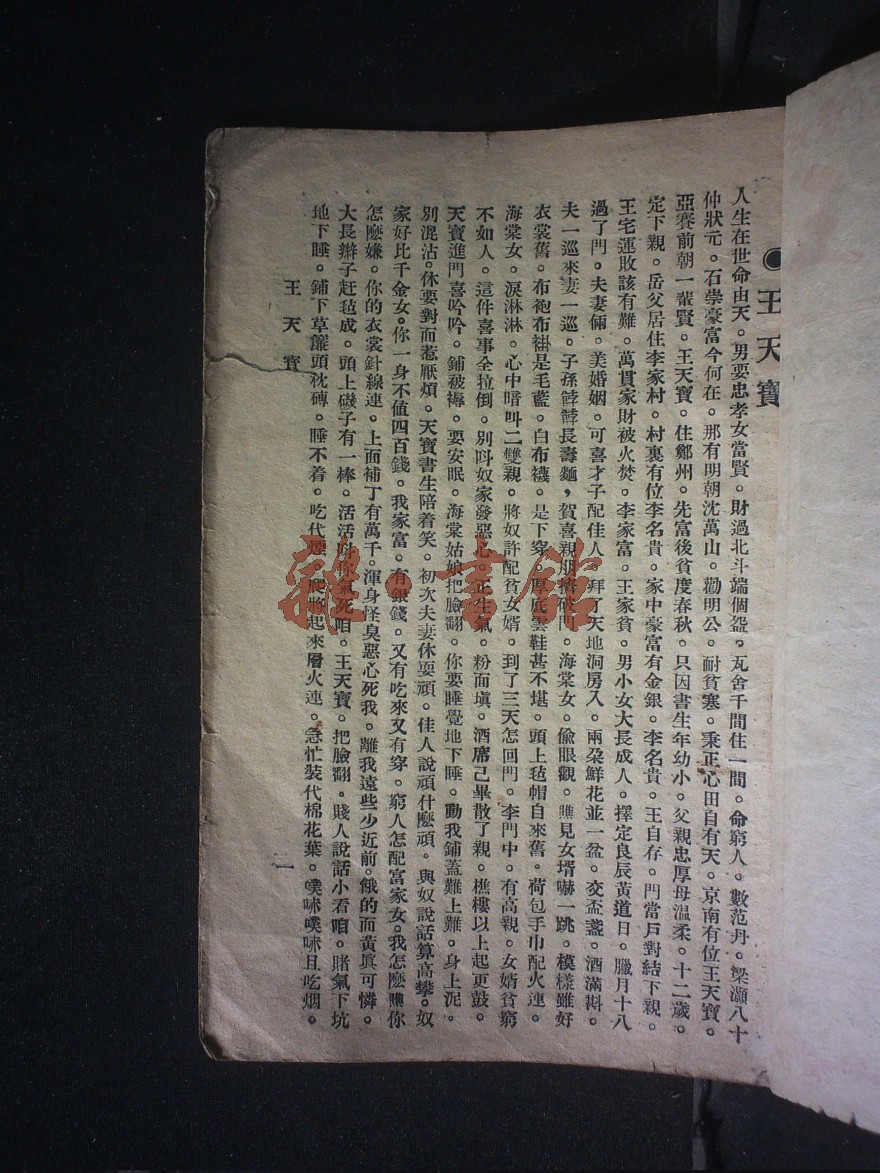 ●王天寶
人生在世命由天。男要忠孝女當賢。財過北斗端個盌。瓦舍千間住一間。命窮人。數范丹。梁灝八十
仲狀元。石崇豪富今何在。那有明朝沈萬山。勸明公。耐貧寒。秉正心田自有天。京南有位王天寶。
亞賽前朝一輩賢。王天寶。住鄭州。先富後貧度春秋。只因書生年幼小。父親忠厚母溫柔。十二歲。
定下親。岳父居住李家村。村裏有位李名貴。家中豪富有金銀。李名貴。王自存。門當戶對結下親。
王宅運敗該有難。萬貫家財被火焚。李家富。王家貧。男小女大長成人。擇定良辰黃道日。臘月十八
過了門。夫妻倆。美婚姻。可喜才子配佳人。拜了天地洞房入。兩朶鮮花並一盆。交盃盞。酒滿斟。
夫一巡來妻一巡。子孫餑餑長壽麵，賀喜親朋擠破門。海棠女。偸眼觀。瞧見女壻嚇一跳。模樣雖好
衣裳舊。布袍布褂是毛藍。白布襪。是下穿。厚底雲鞋甚不堪。頭上毡帽自來舊。荷包手巾配火連。
海棠女。淚淋淋。心中暗叫二雙親。將奴許配貧女婿。到了三天怎回門。李門中。有高親。女婿貧窮
不如人。這件喜事全拉倒。別呌奴家發惡心。正生氣。粉面嗔。酒席已畢散了親。樵樓以上起更鼓。
天寶進門喜吟吟。鋪被褥。要安眠。海棠姑娘把臉翻。你要睡覺地下睡。動我鋪蓋難上難。身上泥。
別混沾。休要對面惹厭煩。天寶書生陪着笑。初次夫妻休耍頑。佳人說頑什麼頑。與奴說話算高攀。奴
家好比千金女。你一身不値四百錢。我家富。有銀錢。又有吃來又有穿。窮人怎配富家女。我怎麼瞧你
怎麼嫌。你的衣裳針線連。上面補丁有萬千。渾身怪臭惡心死我。離我遠些少近前。餓的面黃眞可憐。
大長辮子赶毡成。頭上磯子有一棒。活活呌你氣死咱。王天寶。把臉翻。賤人說話小看咱。賭氣下坑
地下睡。鋪下草簾頭枕磚。睡不着。吃代煙。爬將起來層火連。急忙裝代棉花葉。噗哧噗哧且吃烟。
王天寶
一
雜·書館